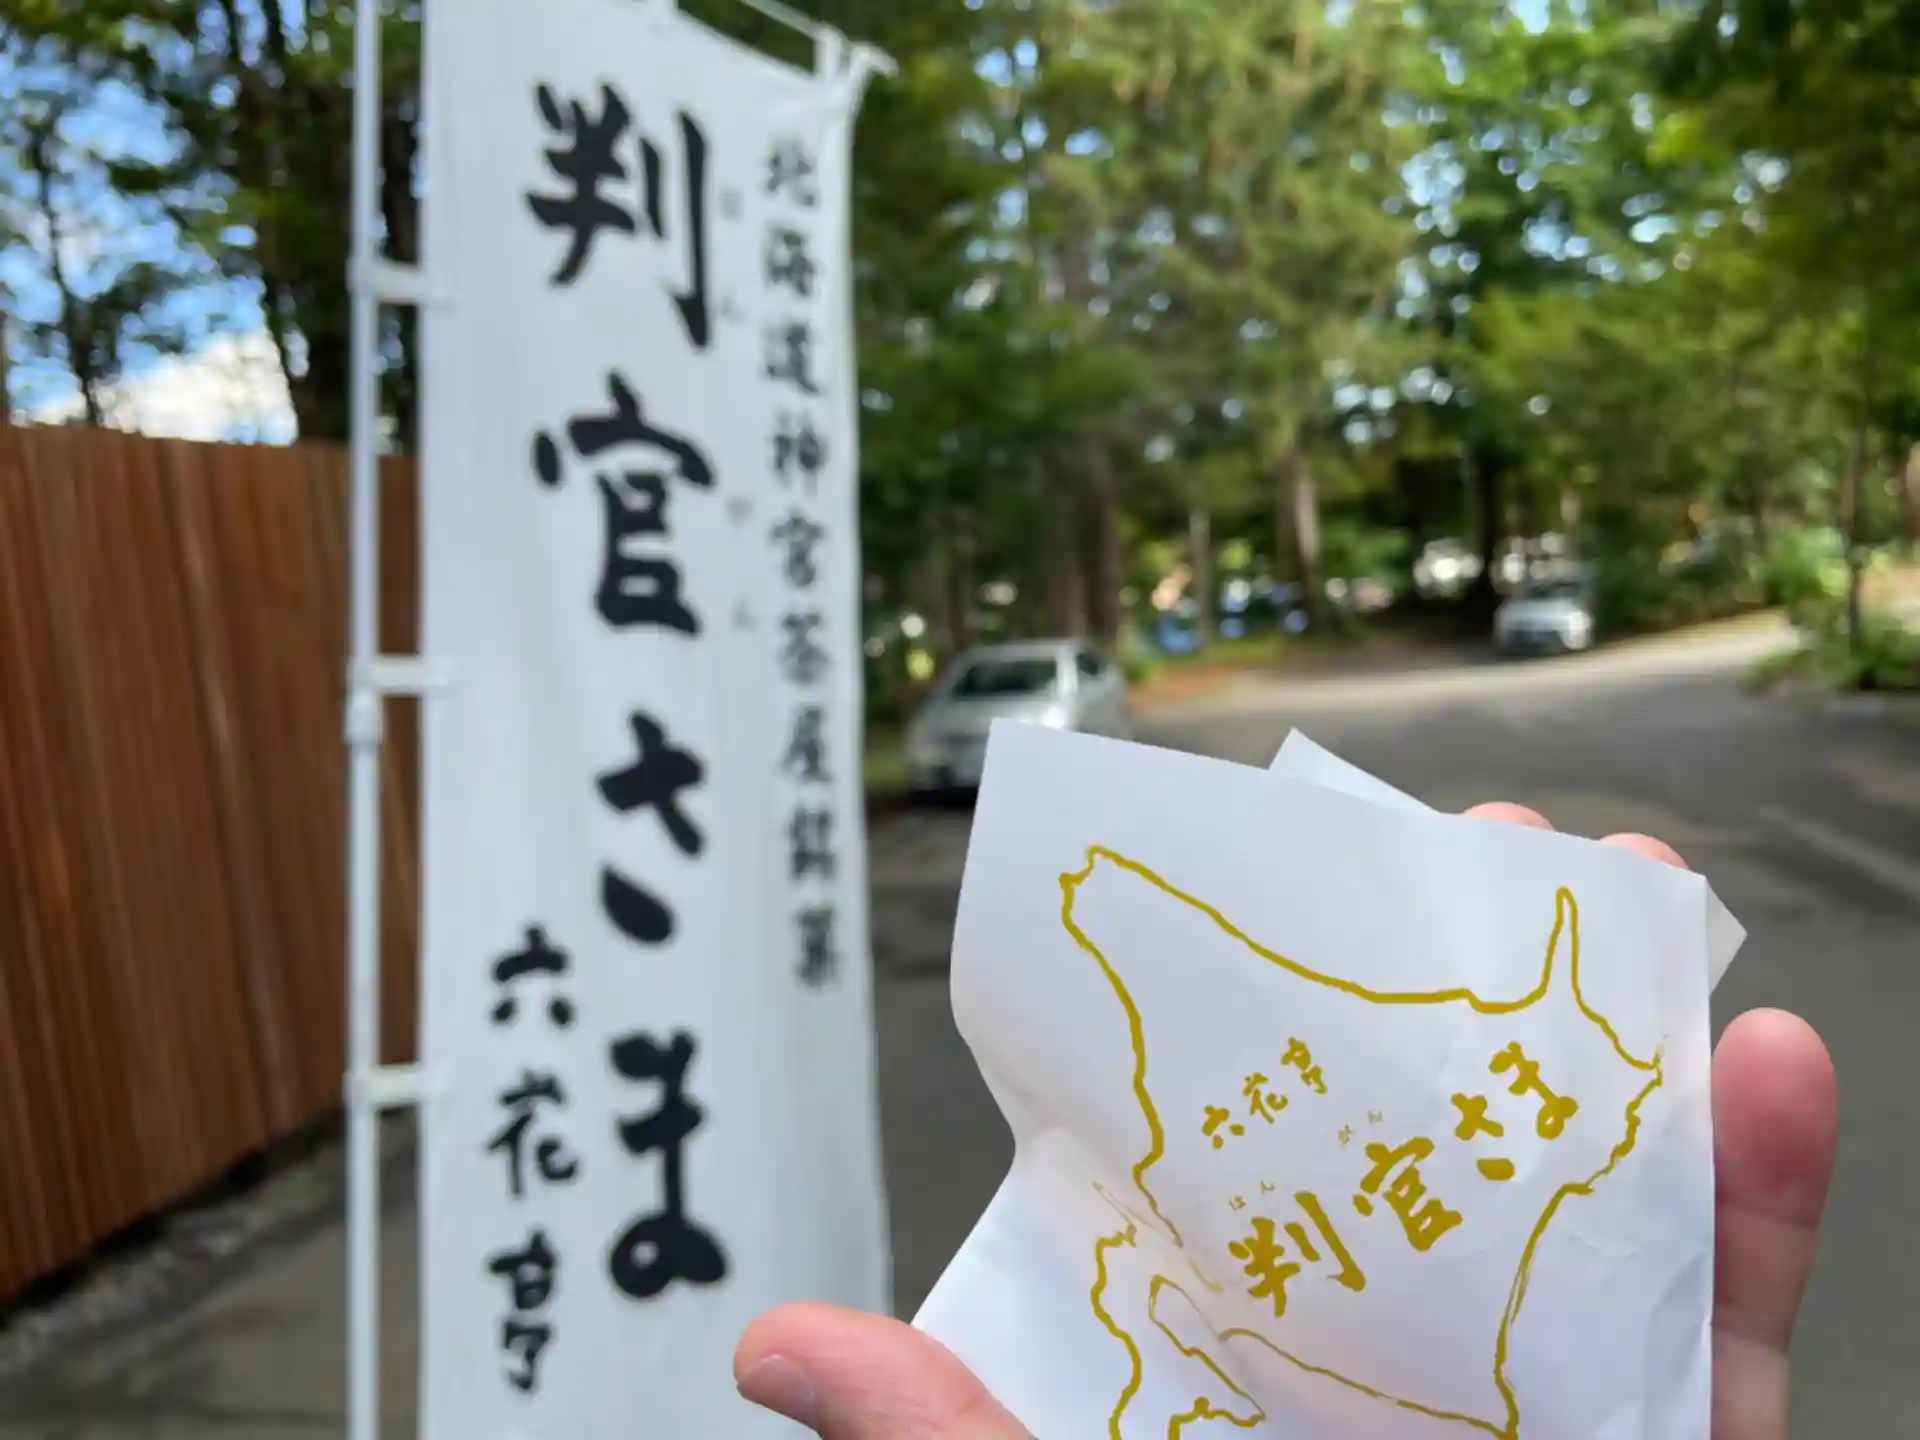 北海道神宮茶屋銘菓
はんがん
判官さま
六花亭
六花亭
はんがん
判官さま